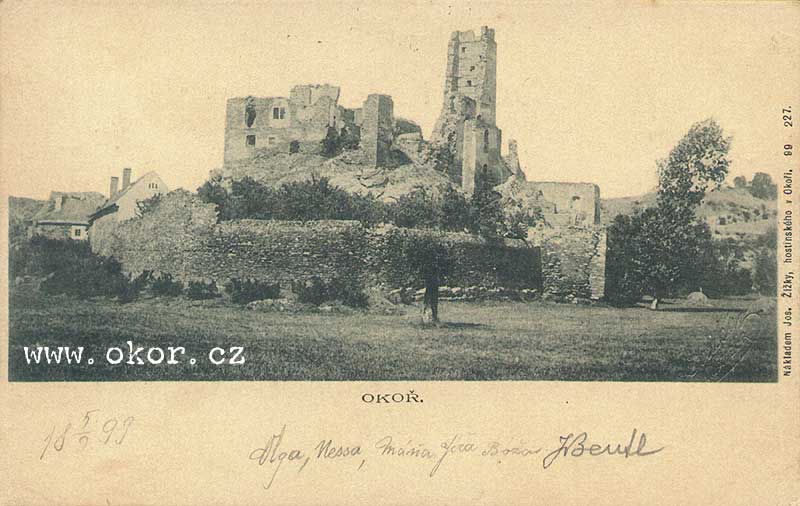 www.okor.cz
Nákladem Jos. Žižky, hostinského v Okoři. 99 227.
OKOŘ.
18 5/9 99
Olga, Nessa, Máňa, Jiřa Boža JBentl